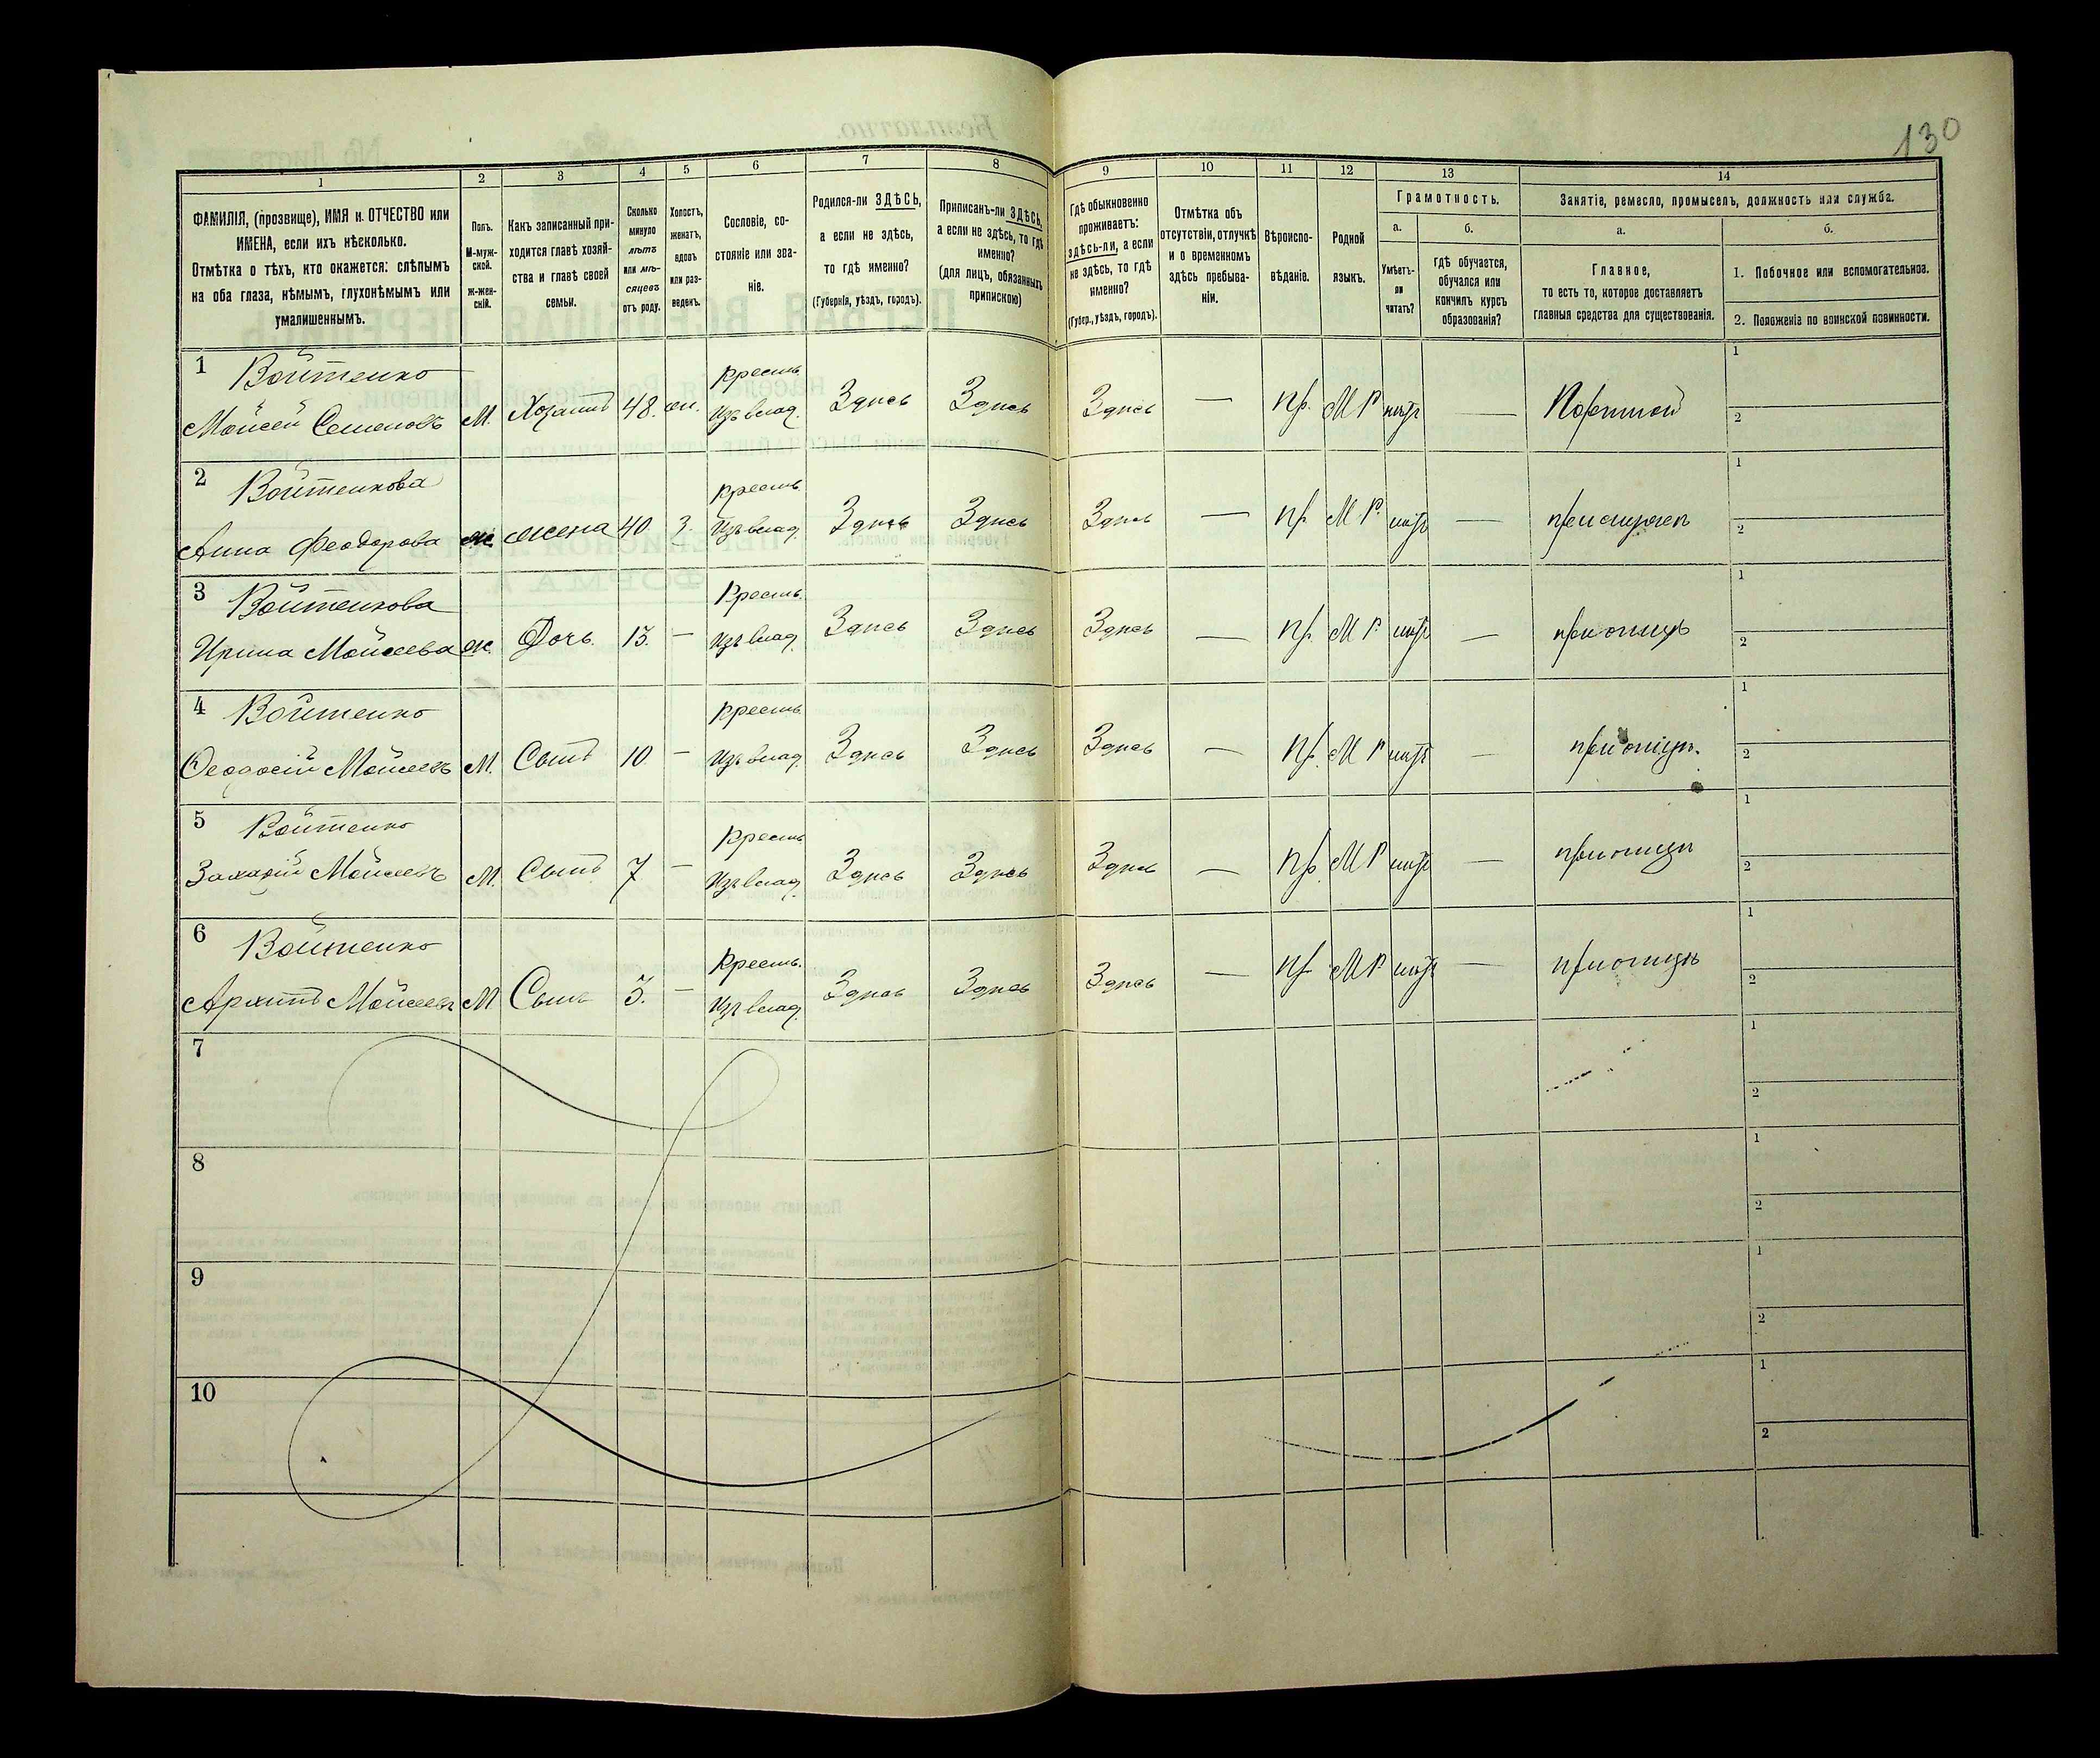 130
1 2 3 4 5 6 7 8 9 10 11 12 13 14
ФАМИЛІЯ, (прозвище), ИМЯ и ОТЧЕСТВО или
ИМЕНА, если ихъ нѣсколько.
Отмѣтка о тѣхъ, кто окажется: слѣпымъ
на оба глаза, нѣмымъ, глухонѣмымъ или
умалишеннымъ.
Полъ.
М-муж-
ской.
Ж-жен-
скій.
Какъ записанный при-
ходится главѣ хозяй-
ства и главѣ своей
семьи.
Сколько
минуло
лѣтъ
или мѣ-
сяцевъ
отъ роду.
Холостъ,
женатъ,
вдовъ
или раз-
веденъ.
Сословіе, со-
стояніе или зва-
ніе.
Родился-ли ЗДѢСЬ,
а если не здѣсь,
то гдѣ именно?
(Губернія, уѣздъ, городъ).
Приписанъ-ли ЗДѢСЬ,
а если не здѣсь, то гдѣ
именно?
(для лицъ, обязанныхъ
припискою)
Гдѣ обыкновенно
проживаетъ:
здѣсь-ли, а если
не здѣсь, то гдѣ
именно?
(Губер., уѣздъ, городъ).
Отмѣтка объ
отсутствіи, отлучкѣ
и о временномъ
здѣсь пребыва-
ніи.
Вѣроиспо-
вѣданіе.
Родной
языкъ.
Грамотность.
а.
Умѣетъ-
ли
читать?
б.
гдѣ обучается,
обучался или
кончилъ курсъ
образованія?
Занятіе, ремесло, промыселъ, должность или служба.
а.
Главное,
то есть то, которое доставляетъ
главныя средства для существованія.
б.
1. Побочное или вспомогательное.
2. Положеніе по воинской повинности.
1 Войтенко Крестъ. 1
Мойсей Семеновъ М. Хозяинъ 48. жн. Изъ влад. Здѣсь Здѣсь Здѣсь — пр. М Р нѣтъ — Портной 2
2 Войтенкова Крестъ. 1
Анна Феодорова ж. жена 40 З. Изъ влад. Здѣсь Здѣсь Здѣсь — пр. М Р. нѣтъ — при мужѣ 2
3 Войтенкова Крестъ. 1
Ирина Мойсеева ж. Дочь. 13. — Изъ влад. Здѣсь Здѣсь Здѣсь — пр. М Р. нѣтъ — при отцѣ 2
4 Войтенко Крестъ. 1
Феодосій Мойсеевъ М. Сынъ 10 — Изъ влад. Здѣсь Здѣсь Здѣсь — пр. М Р нѣтъ — при отцѣ. 2
5 Войтенко Крестъ 1
Захарій Мойсеевъ М. Сынъ 7 — Изъ влад. Здѣсь Здѣсь Здѣсь — пр. М Р нѣтъ — при отцѣ 2
6 Войтенко Крестъ. 1
Архипъ Мойсеевъ М Сынъ 3. — Изъ влад. Здѣсь Здѣсь Здѣсь — пр. М Р. нѣтъ — при отцѣ 2
7 1
2
8 1
2
9 1
2
10 1
2